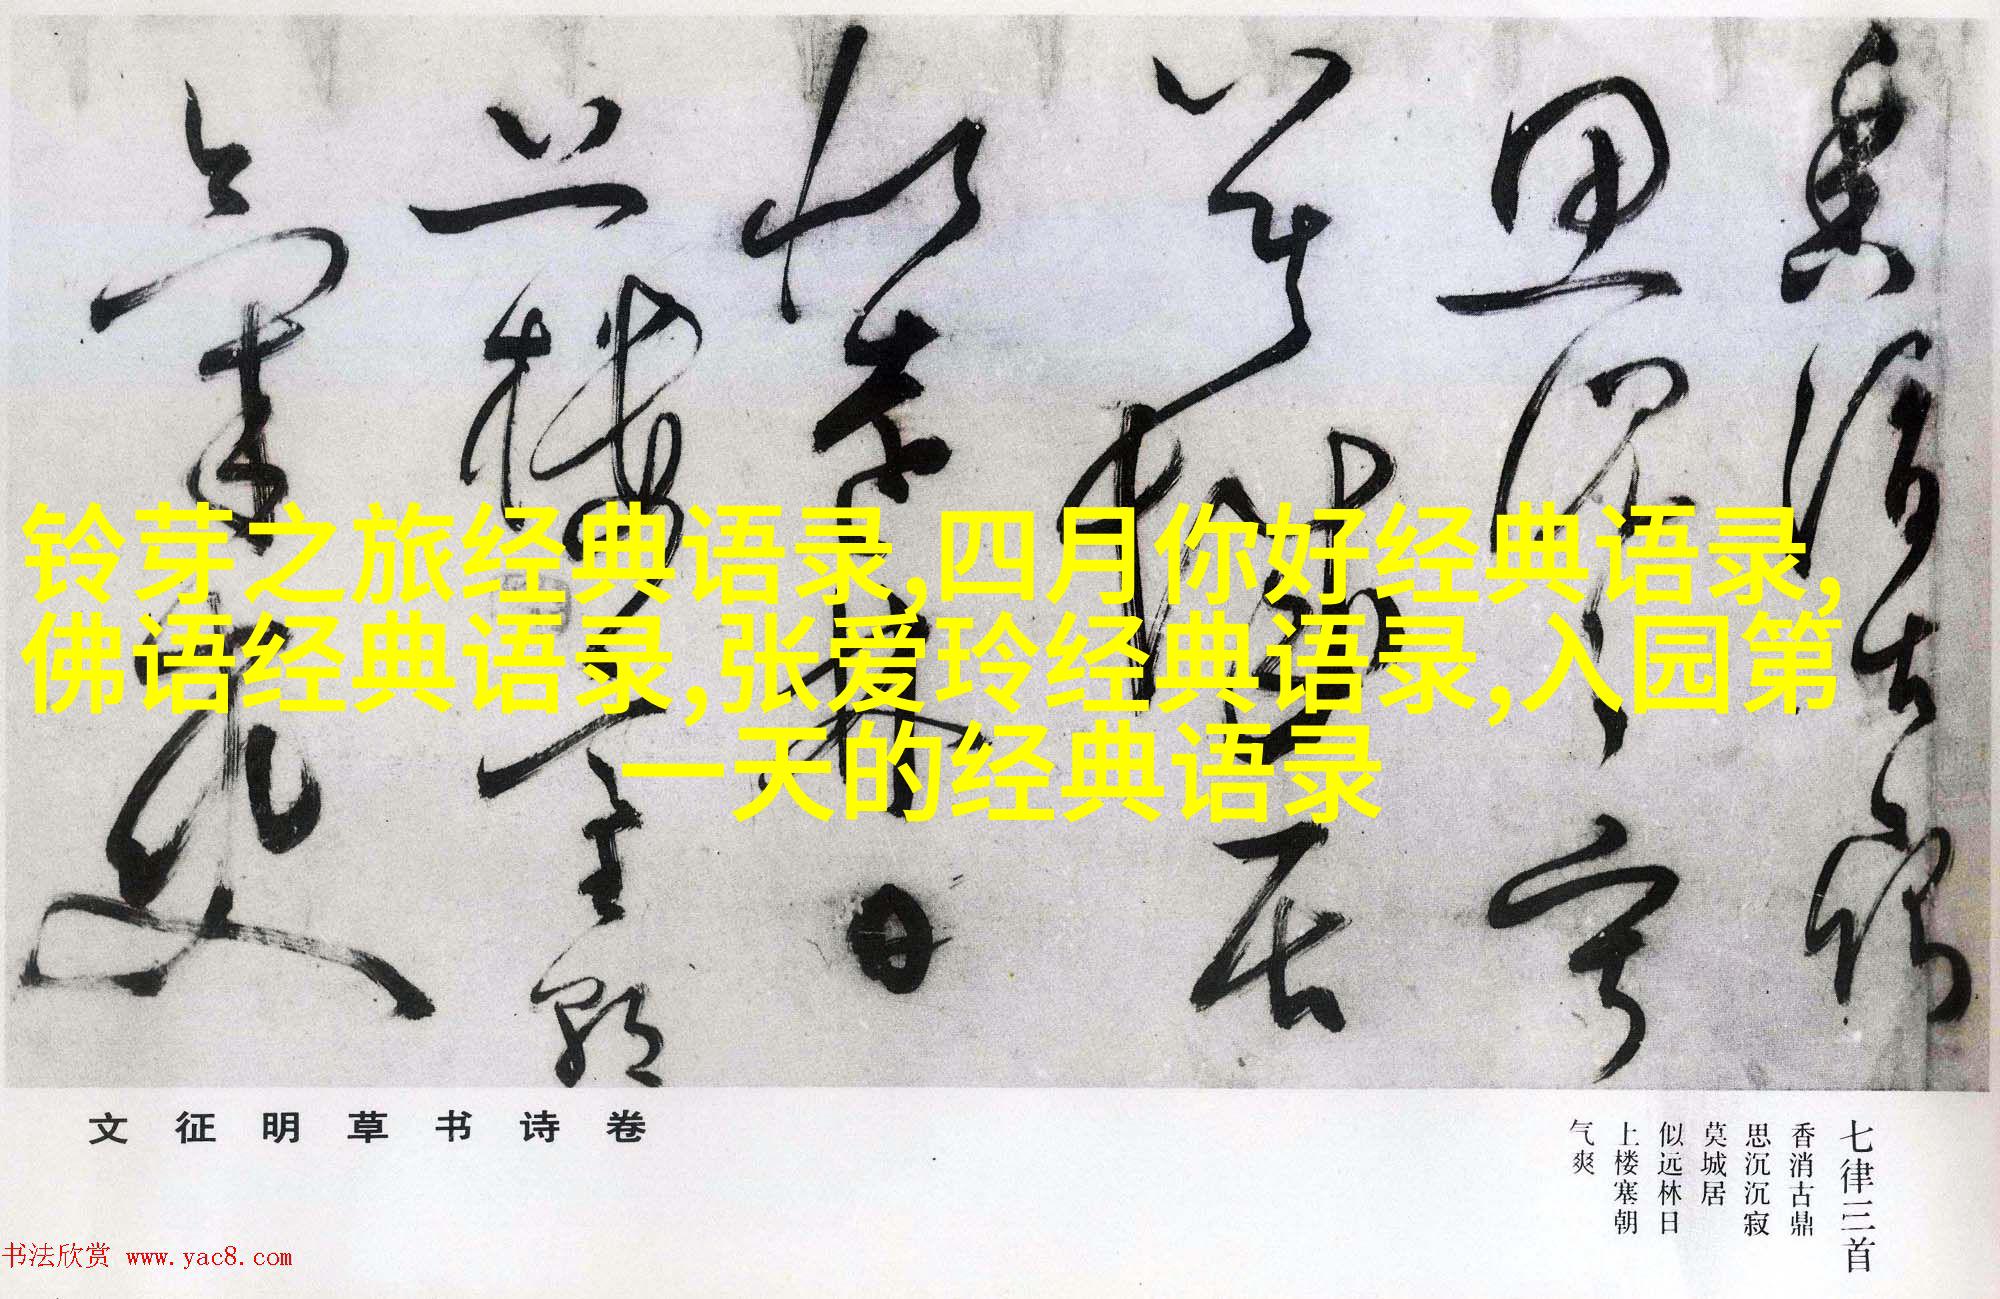 铃芽之旅经典语录,四月你好经典语录,
佛语经典语录,张爱玲经典语录,入园第
一天的经典语录
文征明草书诗卷
七律三首
香消古鼎
思沉沉寂
莫城居
似远林日
上楼塞朝
气爽
书法欣赏 www.yac8.com